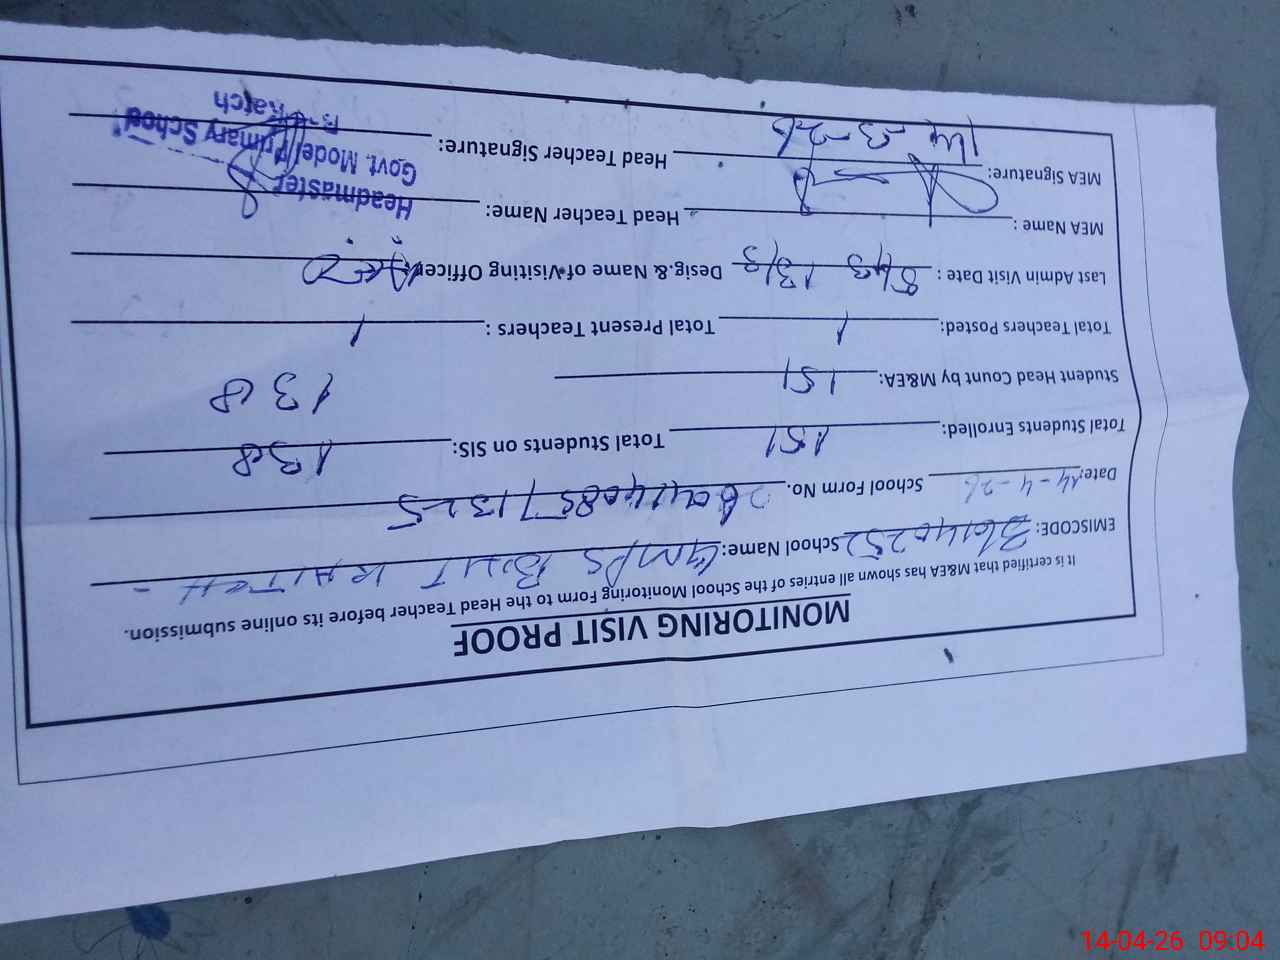 MONITORING VISIT PROOF
It is certified that M&EA has shown all entries of the School Monitoring Form to the Head Teacher before its online submission.
EMISCODE: School Name: GMPS BHIT
Date: 14-4-26 School Form No.
Total Students Enrolled: 151 Total Students on SIS: 138
Student Head Count by M&EA: 151 138
Total Teachers Posted: 1 Total Present Teachers : 1
Last Admin Visit Date : 13/3 Desig.& Name of Visiting Officer:
MEA Name : Head Teacher Name:
MEA Signature: Head Teacher Signature:
14-3-26
Headmaster
Govt. Model Primary School
14-04-26 09:04